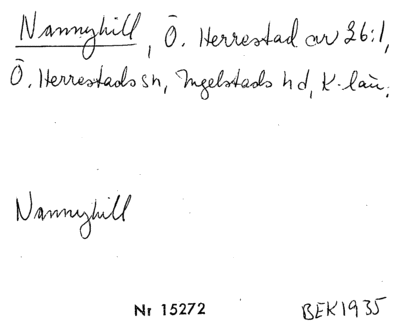 Nannyhill, Ö. Herrestad av 26:1,
Ö. Herrestads sn, Ingelstads hd, K-län.
Nannyhill
Nr 15272 BEK1935